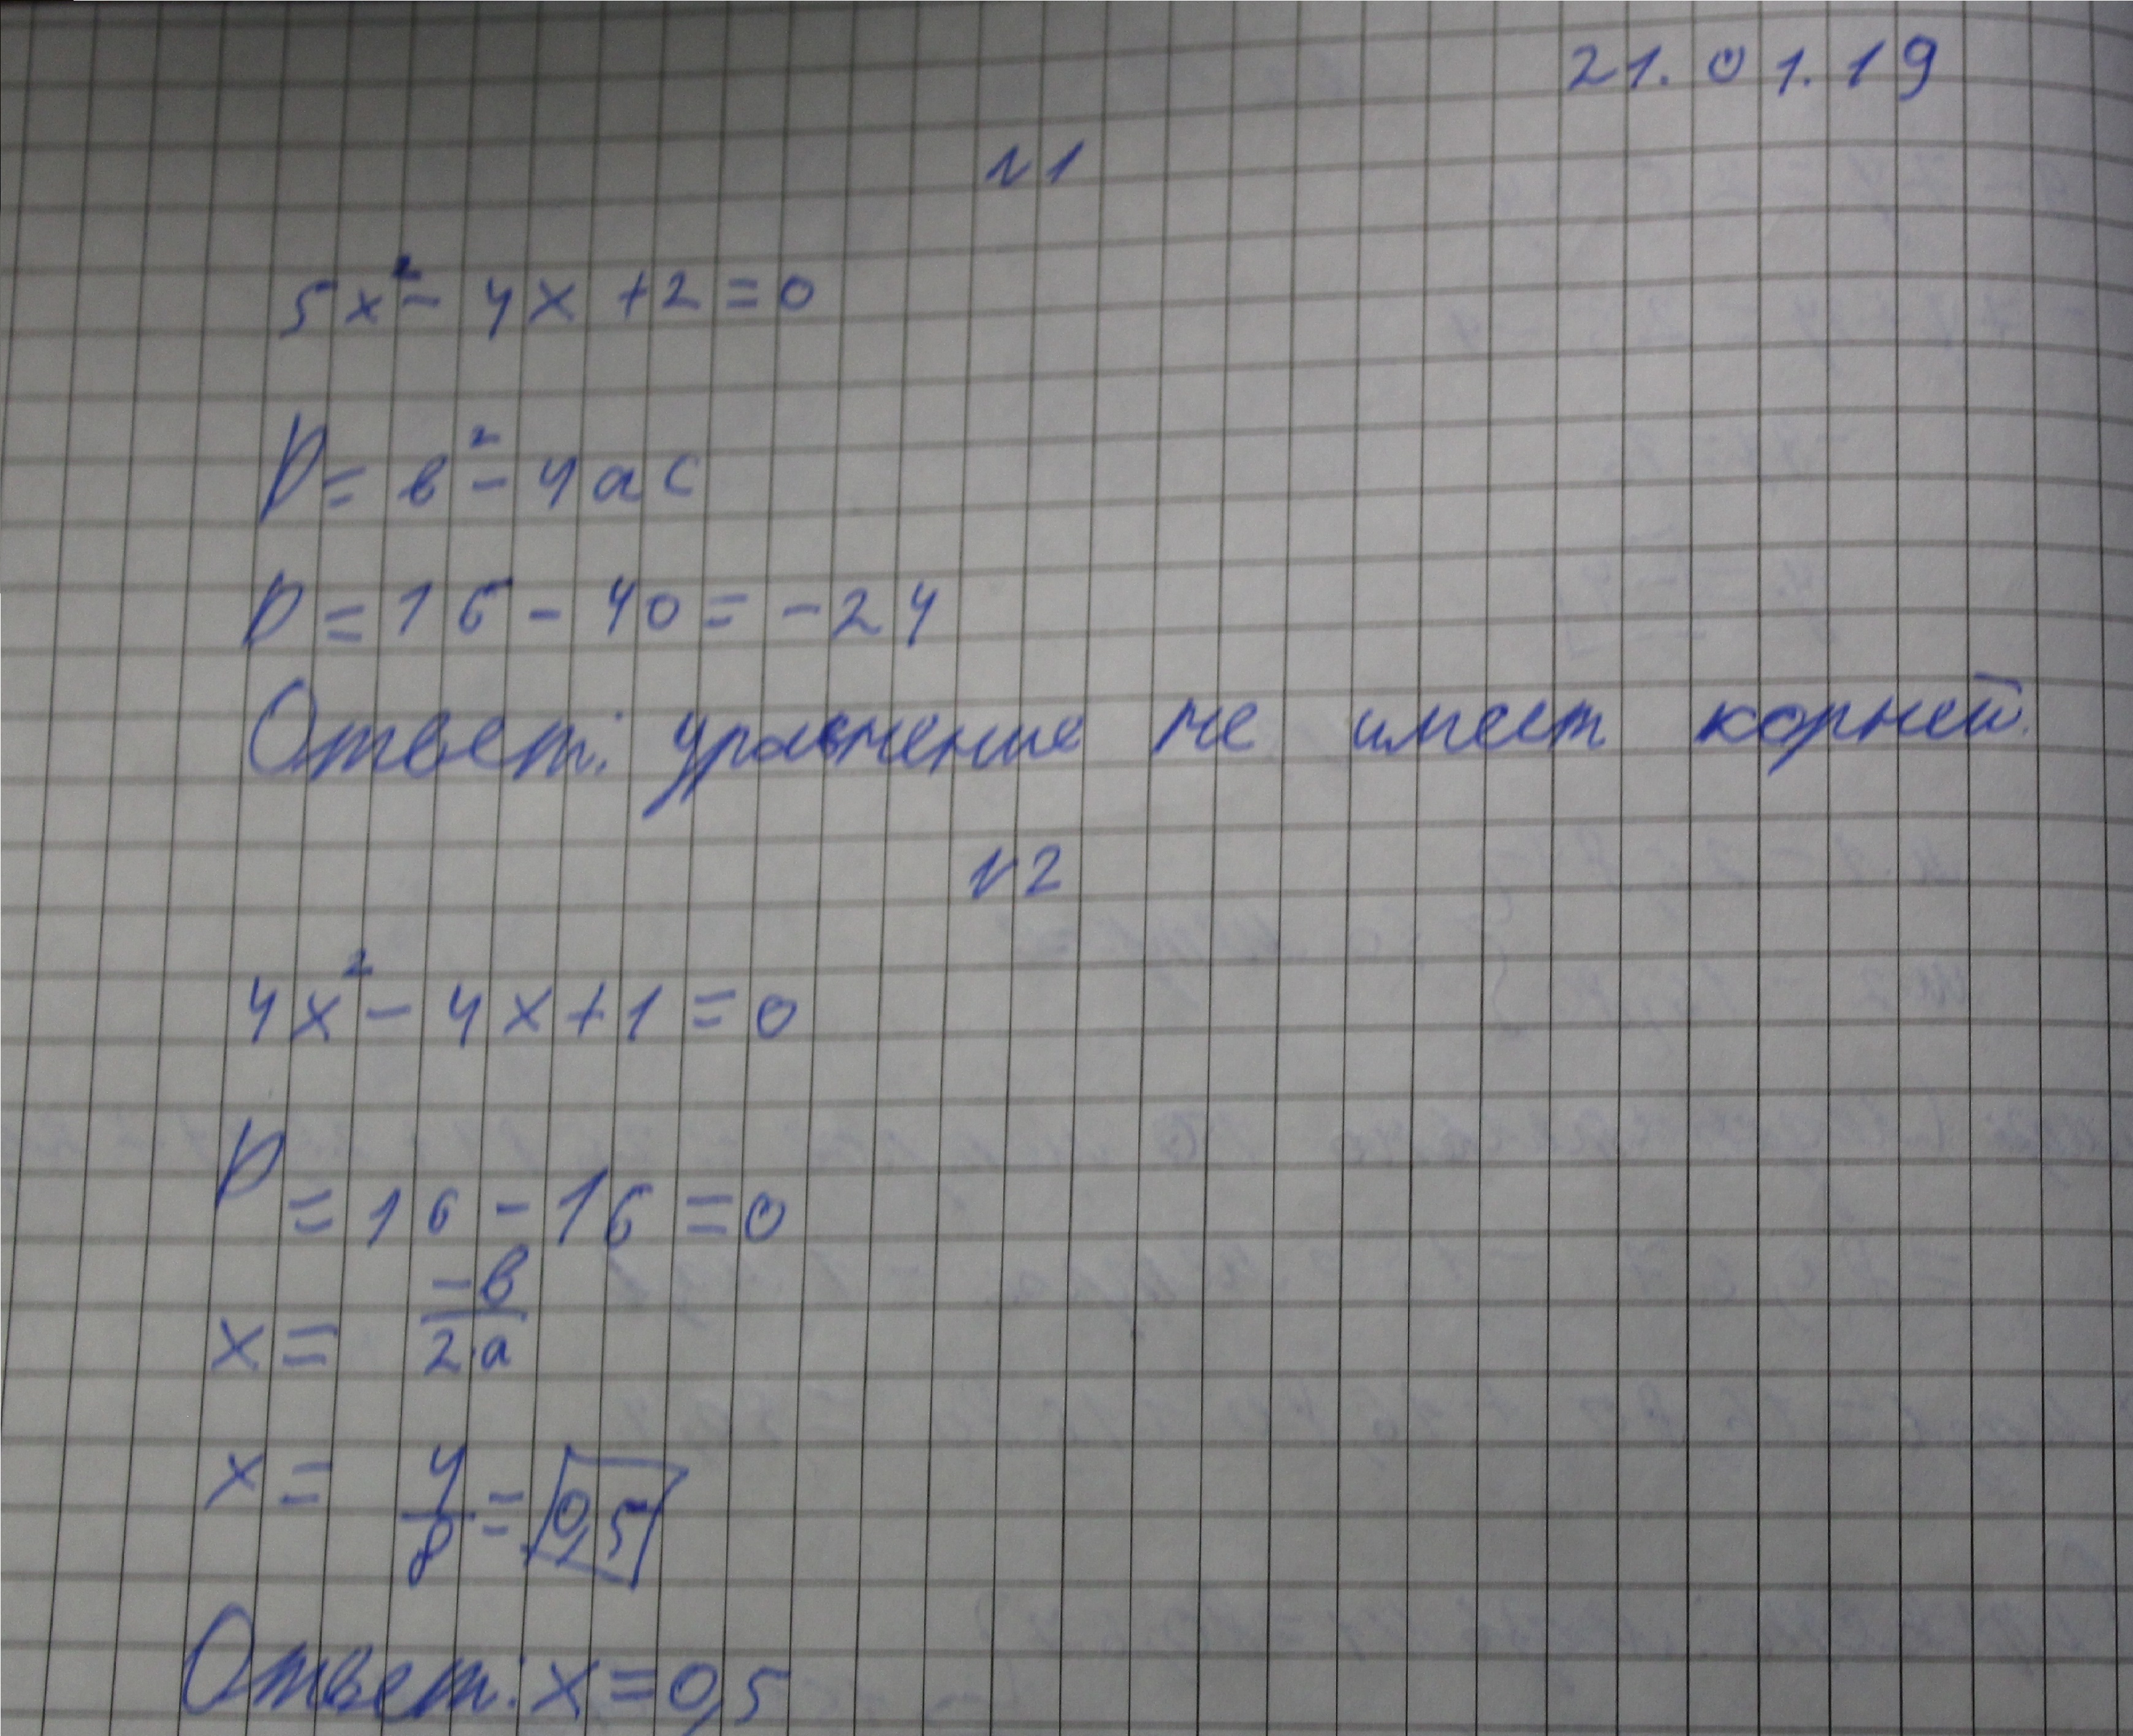 21.01.19
N1
5x² - 4x + 2 = 0
D = в² - 4ac
D = 16 - 40 = -24
Ответ: уравнение не имеет корней.
N2
4x² - 4x + 1 = 0
D = 16 - 16 = 0
x = -в/2·a
x = 4/8 = 0,5
Ответ: x = 0,5